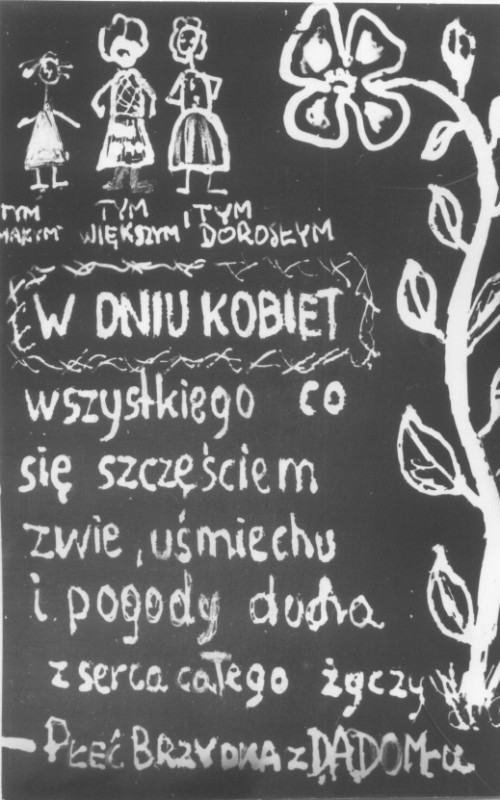 TYM
MAŁYM
TYM
WIĘKSZYM
I TYM
DOROSŁYM
W DNIU KOBIET
wszystkiego co
się szczęściem
zwie, uśmiechu
i pogody ducha
z serca całego życzy
- PŁEĆ BRZYDKA z DADOM-u